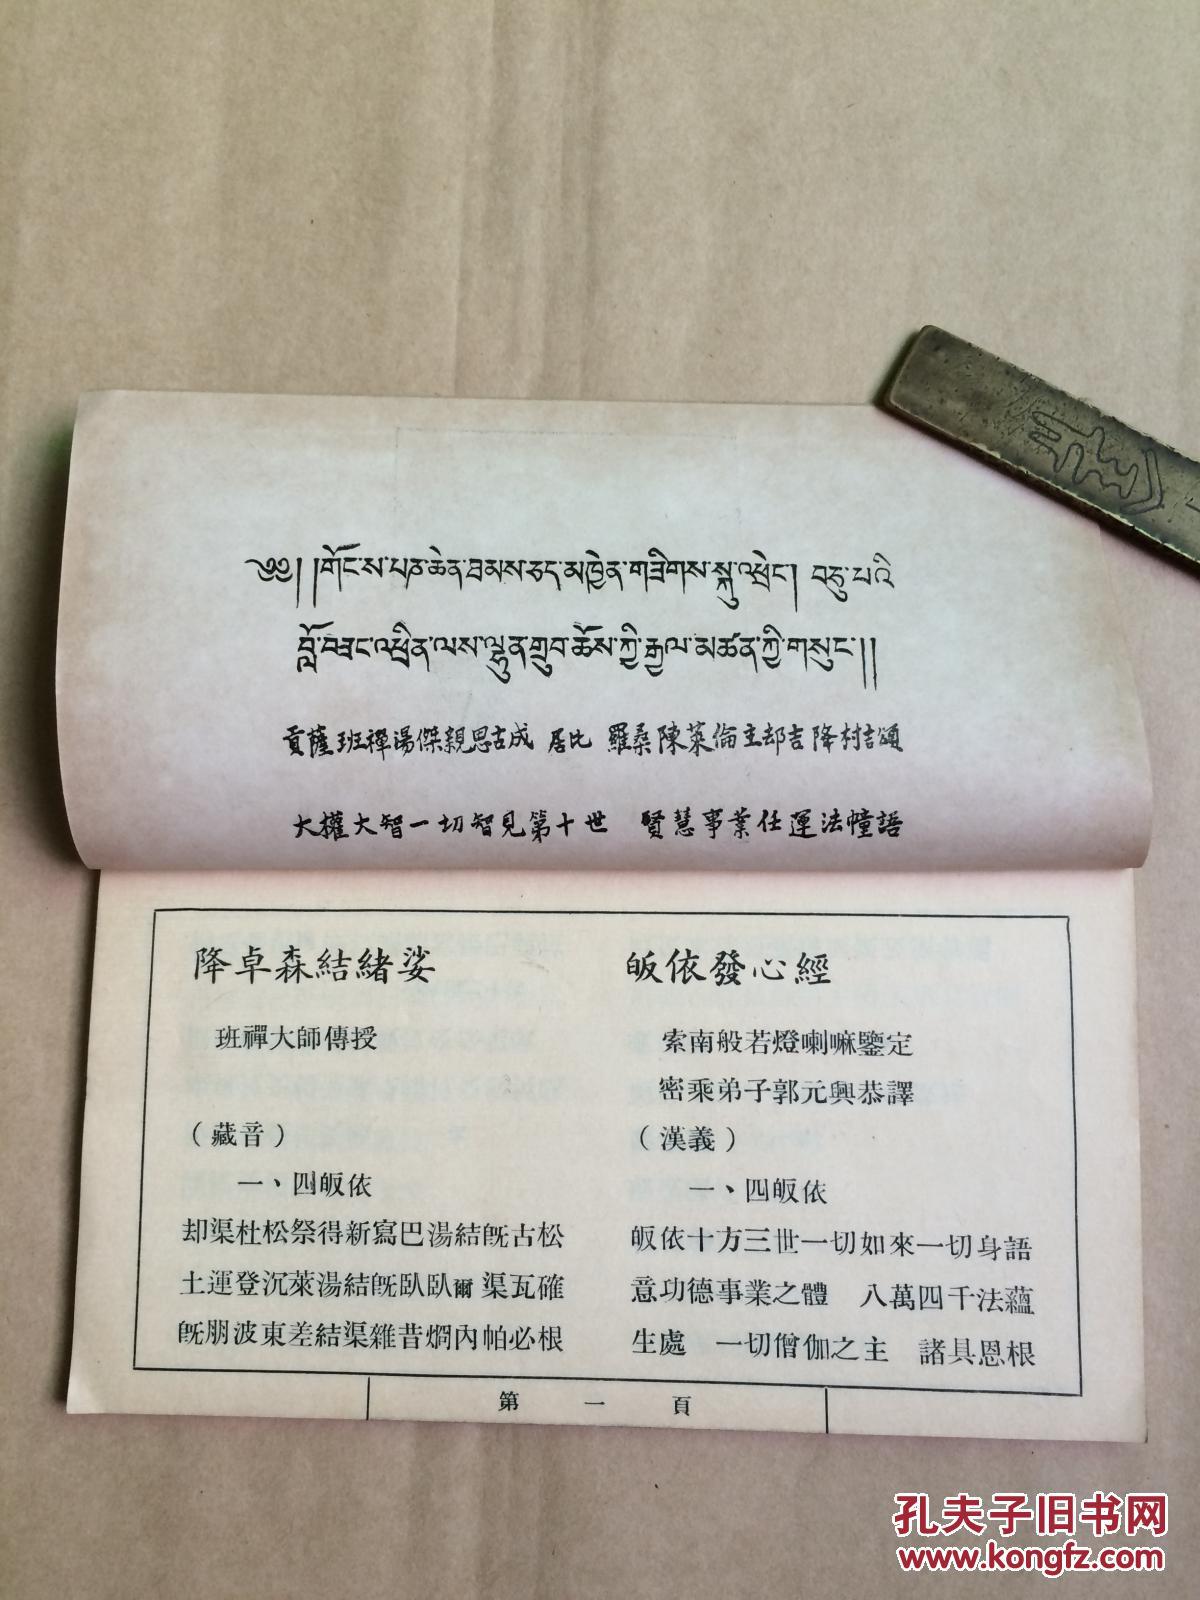 ༄༅། །གོང་ས་པཎ་ཆེན་ཐམས་ཅད་མཁྱེན་གཟིགས་སྐུ་འཕྲེང་། བཅུ་པའི
བློ་བཟང་འཕྲིན་ལས་ལྷུན་གྲུབ་ཆོས་ཀྱི་རྒྱལ་མཚན་ཀྱི་གསུང་།།
貢薩班禪湯傑親思古成 居比 羅桑陳萊倫主却吉降村吉頌
大權大智一切智見第十世 賢慧事業任運法幢語
降卓森結緒娑
班禪大師傳授
（藏音）
一、四皈依
却渠杜松祭得新寫巴湯結旣古松
土運登沉萊湯結旣臥臥爾 渠瓦確
旣朋波東差結渠雜昔烱內帕必根
皈依發心經
索南般若燈喇嘛鑒定
密乘弟子郭元興恭譯
（漢義）
一、四皈依
皈依十方三世一切如來一切身語
意功德事業之體 八萬四千法蘊
生處 一切僧伽之主 諸具恩根
第一頁
孔夫子旧书网
www.kongfz.com